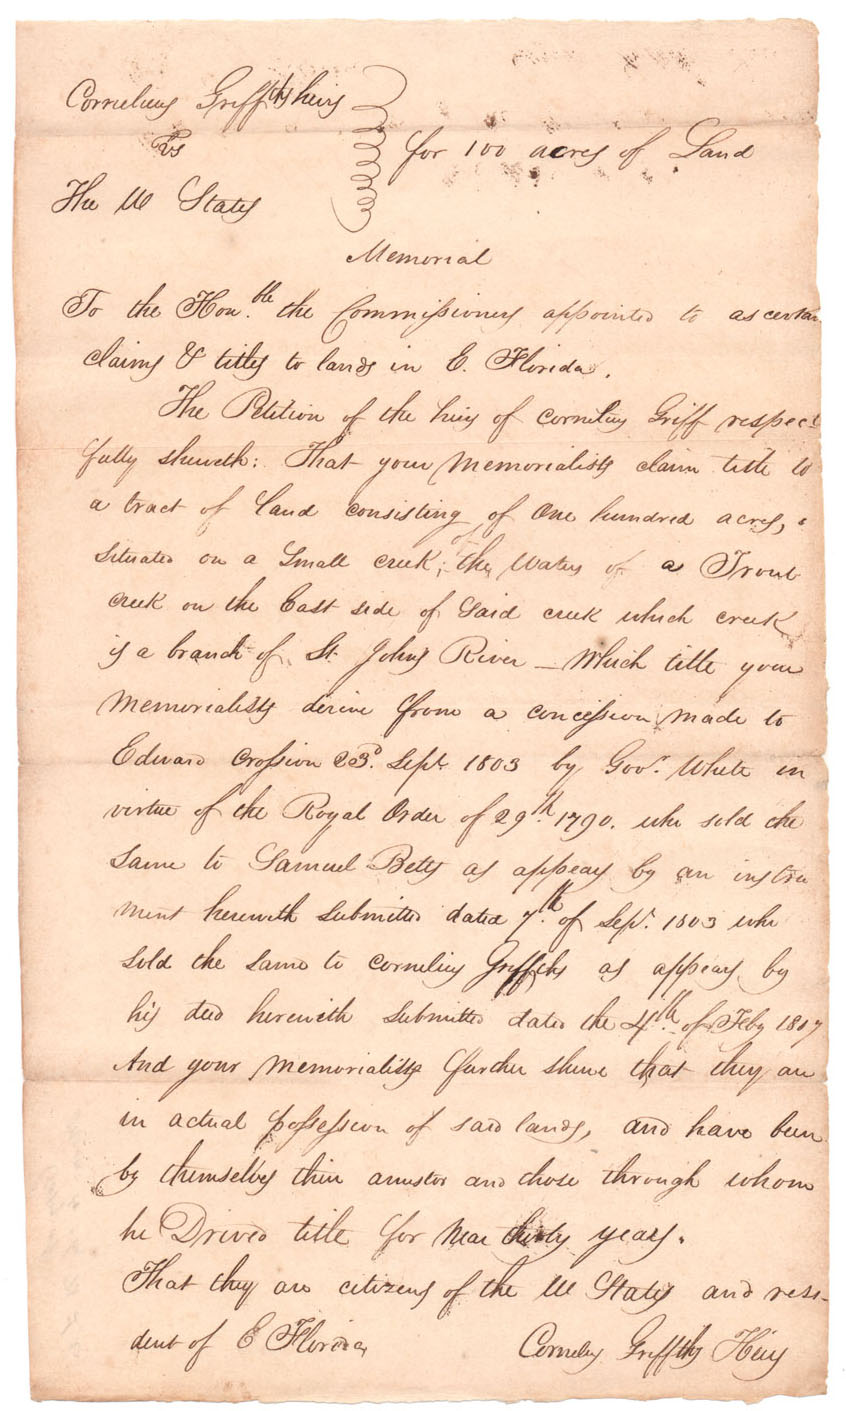 Cornelius Griffiths heirs
vs
for 100 acres of Land
The U States
Memorial
To the Hon.ble the Commissioners appointed to ascertain
claims & titles to lands in E. Florida.
The Petition of the heirs of Cornelius Griff respect
fully sheweth: That your Memorialists claim title to
a tract of land consisting of One hundred acres,
situated on a Small creek, of the Waters of a Trout
creek on the East side of Said creek which creek
is a branch of St. Johns River – Which title your
Memorialists derive from a concession made to
Edward Crossion 23d. Sept. 1803 by Govr. White in
virtue of the Royal Order of 29th. 1790. who sold the
Same to Samuel Betts as appears by an instru
ment herewith submitted dated 7th. of Sept. 1803 who
sold the same to Cornelius Griffiths as appears by
his deed herewith submitted dated the 4th. of Feby 1807
And your Memorialists further shew that they are
in actual possession of said lands, and have been
by themselves their ancestor and those through whom
he Drived title for Near thirty years.
That they are citizens of the U States and resi-
dent of E Florida
Cornelius Griffiths Heirs